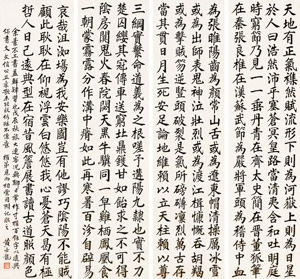 天地有正氣雜然賦流形下則為河嶽上則為日星
於人曰浩然沛乎塞蒼冥皇路當清夷含和吐明庭
時窮節乃見一一垂丹青在齊太史簡在晉董狐筆
在秦張良椎在漢蘇武節為嚴將軍頭為嵇侍中血
為張睢陽齒為顏常山舌或為遼東帽清操厲冰雪
或為出師表鬼神泣壯烈或為渡江楫慷慨吞胡羯
或為擊賊笏逆豎頭破裂是氣所磅礴凜烈萬古存
當其貫日月生死安足論地維賴以立天柱賴以尊
三綱實繫命道義為之根嗟予遘陽九隸也實不力
楚囚纓其冠傳車送窮北鼎鑊甘如飴求之不可得
陰房闃鬼火春院閟天黑牛驥同一皂雞棲鳳凰食
一朝蒙霧露分作溝中瘠如此再寒暑百沴自辟易
哀哉沮洳場為我安樂國豈有他謬巧陰陽不能賊
顧此耿耿在仰視浮雲白悠悠我心憂蒼天曷有極
哲人日已遠典型在夙昔風簷展書讀古道照顏色